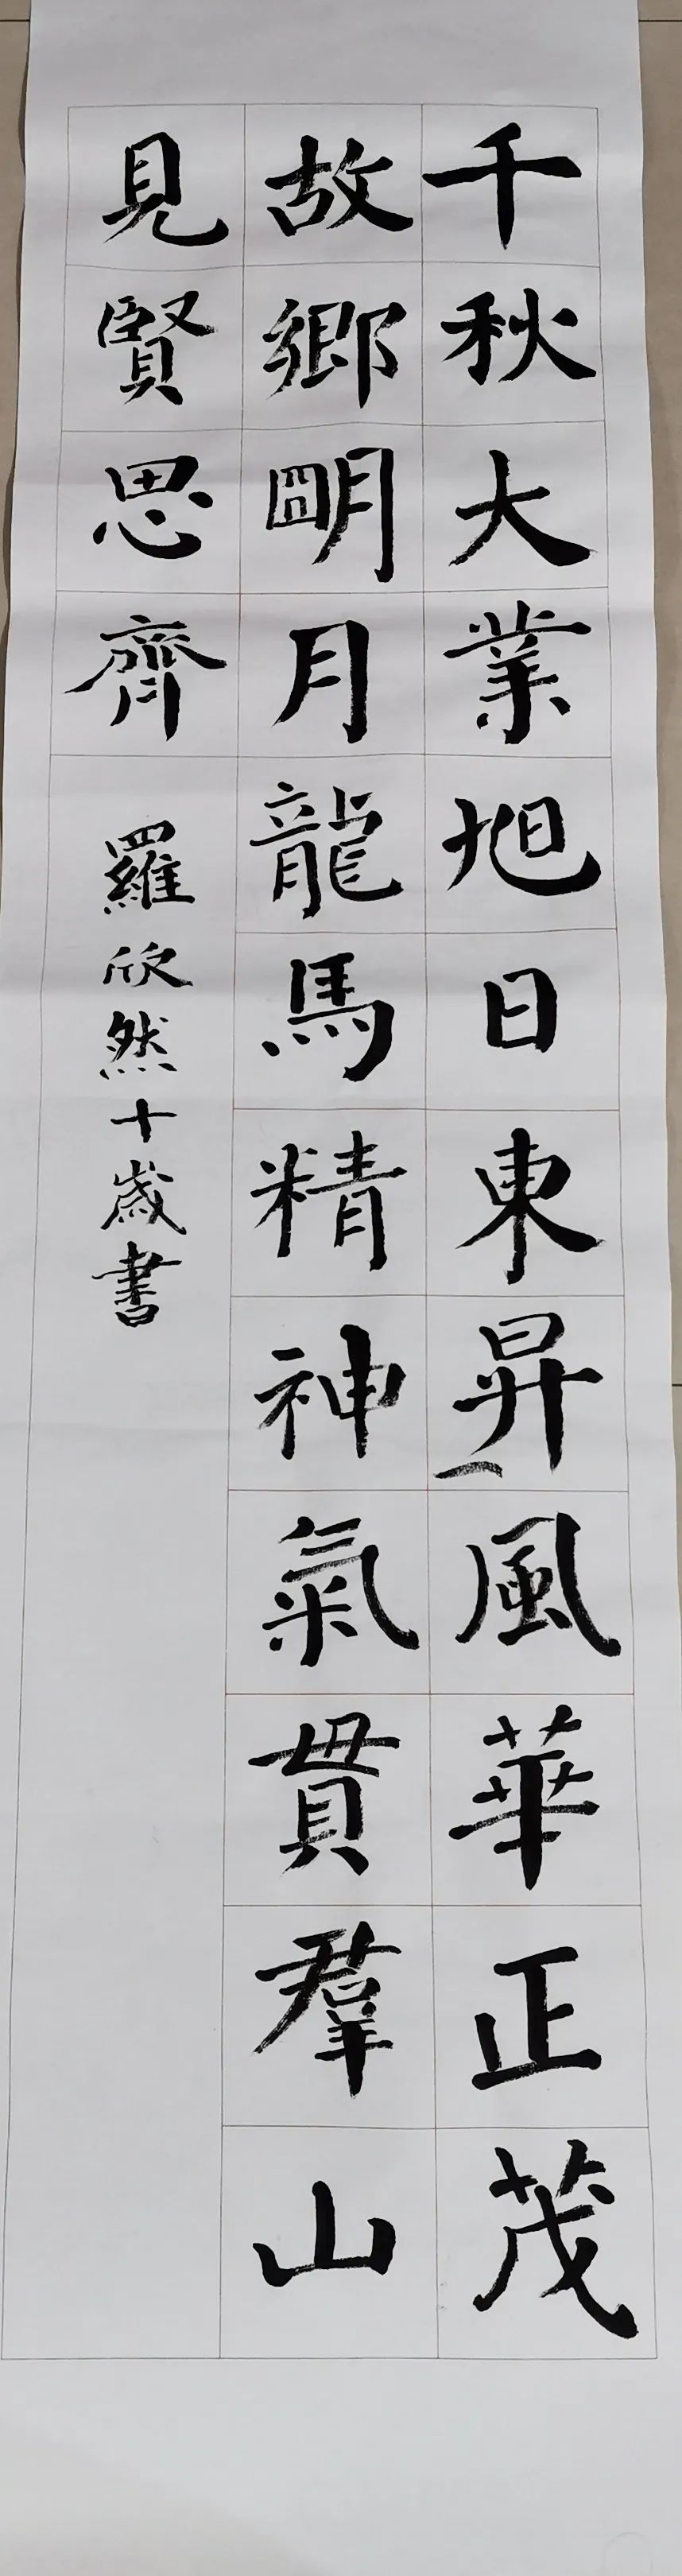 千秋大業旭日東昇風華正茂
故鄉明月龍馬精神氣貫羣山
見賢思齊
羅欣然十歲書